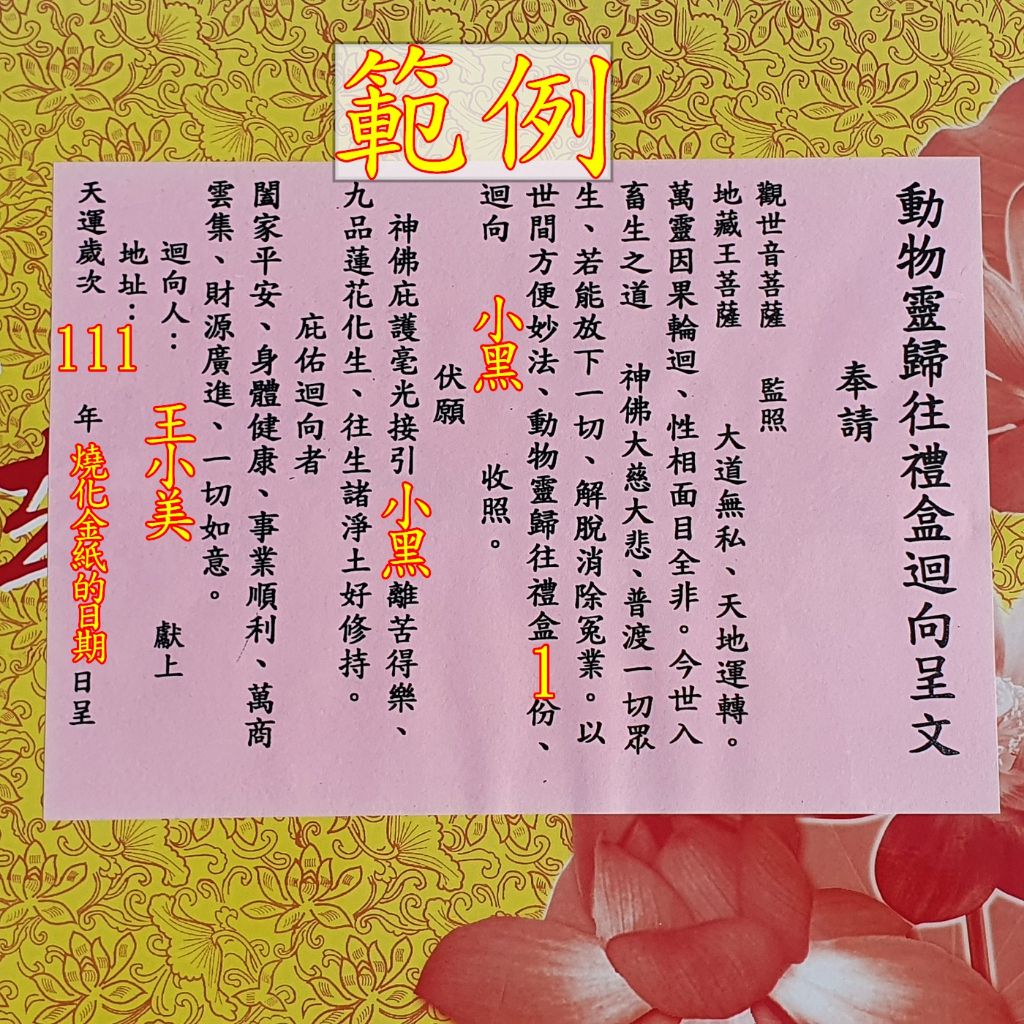 範例
動物靈歸往禮盒迴向呈文
奉請
觀世音菩薩 監照
地藏王菩薩 大道無私、天地運轉。
萬靈因果輪迴、性相面目全非。今世入
畜生之道 神佛大慈大悲、普渡一切眾
生、若能放下一切、解脫消除冤業。以
世間方便妙法、動物靈歸往禮盒1份、
迴向 小黑 收照。
伏願
神佛庇護毫光接引小黑離苦得樂、
九品蓮花化生、往生諸淨土好修持。
庇佑迴向者
闔家平安、身體健康、事業順利、萬商
雲集、財源廣進、一切如意。
迴向人：王小美 獻上
地址：
天運歲次111年燒化金紙的日期日呈